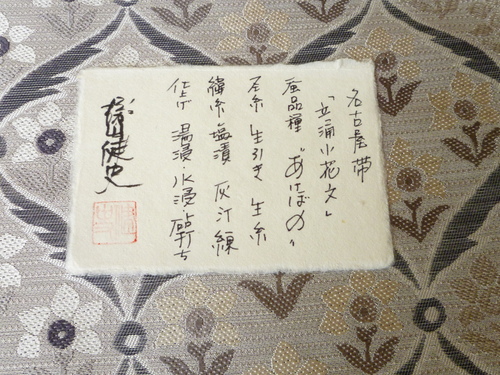 名古屋帯
「立涌小花文」
蚕品種 "あけぼの"
経糸 生引き 生糸
緯糸 塩漬 灰汁練
仕上げ 湯浸・水浸 砧打ち